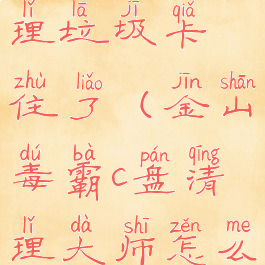 lǐ lā jī qiǎ
理垃圾卡
zhù liǎo jīn shān
住了(金山
dú bà pán qīng
毒霸c盘清
lǐ dà shī zěn me
理大师怎么